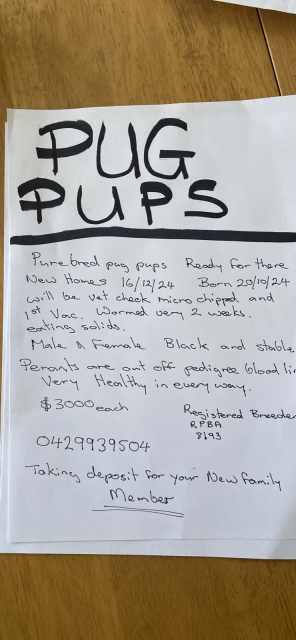 PUG
PUPS
Purebred pug pups Ready for there
New Homes 16/12/24 Born 20/10/24
will be vet check micro chipped and
1st Vac. Wormed very 2 weeks.
eating solids.
Male & Female Black and stable
Perants are out off pedigree blood lin
Very Healthy in every way.
$3000 each
Registered Breeder
RPBA
8193
0429939504
Taking deposit for your New family
Member